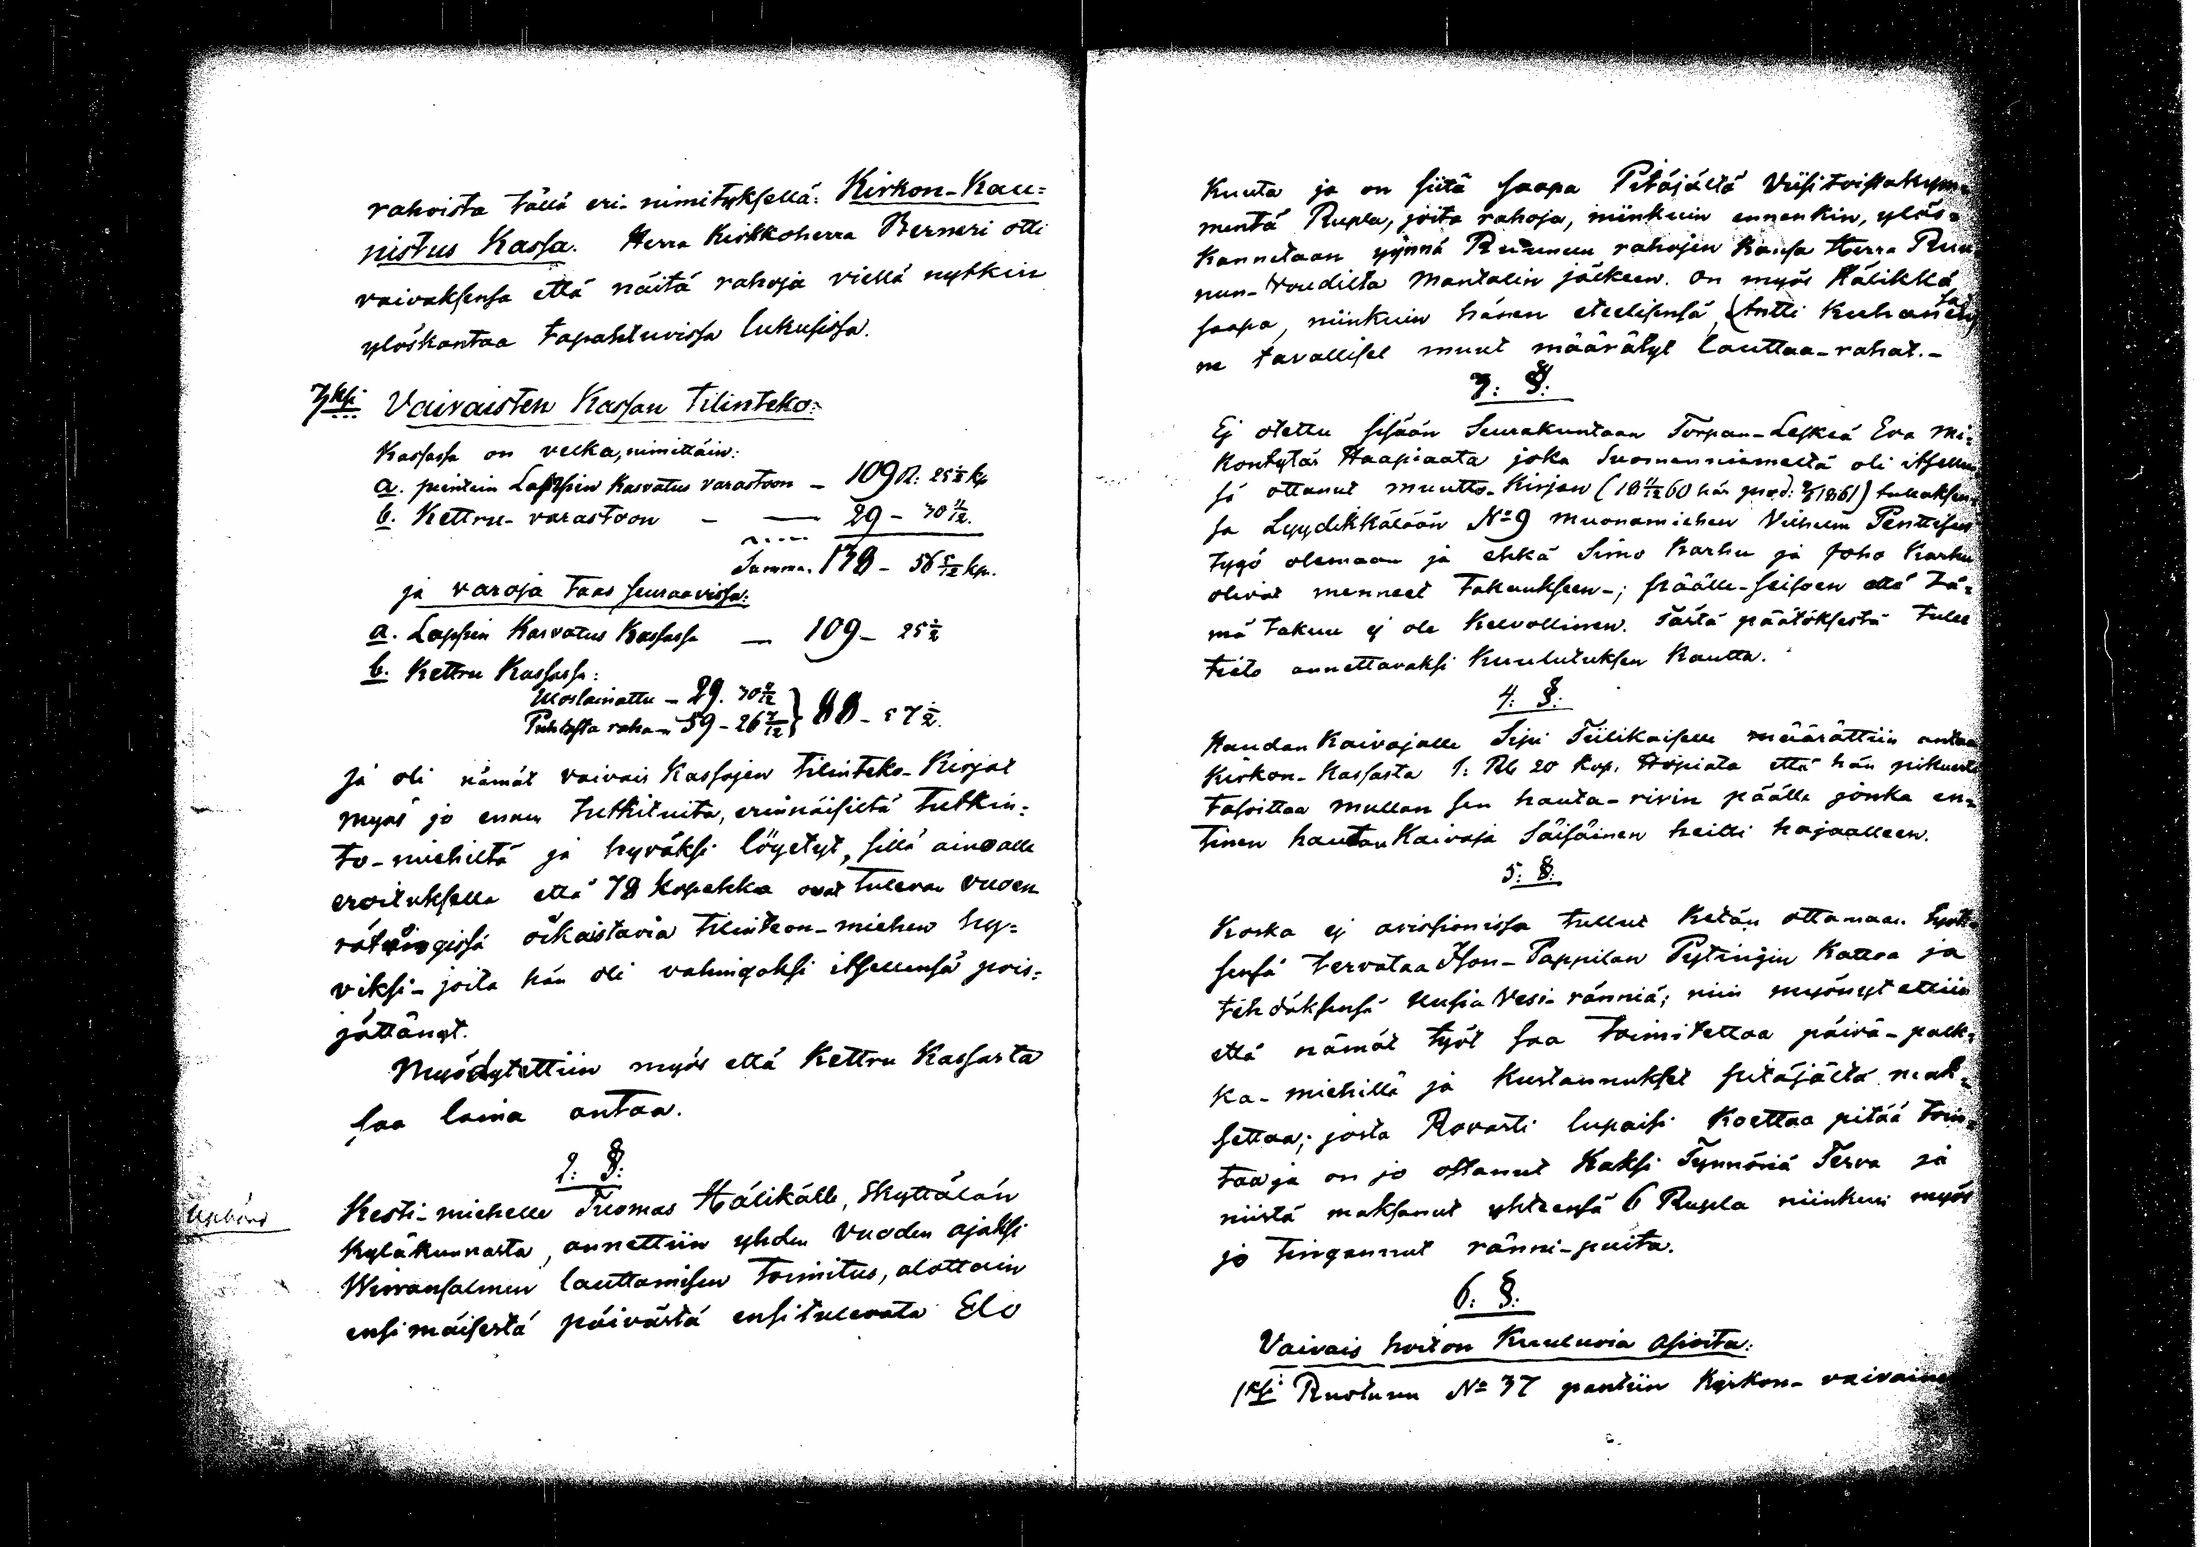 rahoista tällä eri-nimityksellä: Kirkon-Kau=
nistus Kassa. Herra Kirkkoherra Berneri otti
vaivaksensa että näitä rahoja viellä nytkin
ylöskantaa tapahtuvissa lukusissa.
3ksi Vaivaisten Kassan Tilinteko:
Kassassa on velka, nimittäin:
a. pientein Lapsein Kasvatus varastoon - 109 R: 25 1/2 kp
b. Kettru-varastoon - — 29 - 30 11/12.
Summa. 138 - 56 5/12 kp.
ja varoja taas seuraavissa:
a. Lapsein Kasvatus Kassassa — 109 - 25 1/2
b. Kettru Kassassa:
Uloslainattu - 29. 30 11/12
Puhtasta rahaa - 59 - 26 7/12 } 88 - 57 1/2.
ja oli nämät vaivais Kassojen Tilinteko-Kirjat
myös jo ennen tutkituita, erinäisiltä Tutkin=
to-miehiltä ja hyväksi löyetyt, sillä ainoalla
eroituksella että 78 kopekka ovat Tulevan vuoen
rätningissä oikaistavia Tilinteon-miehen hy=
viksi - joita hän oli vahingoksi itsellensä pois=
jättänyt.
Myödytettiin myös että Kettru Kassasta
saa laina antaa.
2: §:
Kesti-miehelle Tuomas Hälikälle, Skyttälän
Kyläkunnasta, annettiin yhden vuoden ajaksi
Wirransalmen lauttamisen Toimitus, alottain
ensimäisestä päivästä ensitulevata Elo
Kuuta ja on siitä saapa Pitäjältä Viisitoistakym=
mentä Rupla, joita rahoja, niinkuin ennenkin, ylös=
kannetaan ynnä Ruunun rahojen kansa Herra Ruu
nun-Voudilta Mantalin jälkeen. On myös Hälikkä
saapa, niinkuin hänen eteelisensä, (Antti Kuhanen)
ne tavalliset muut määrätyt lauttaa-rahat.-
3: §:
Ej otettu sisään Seurakuntaan Torpan-Leskiä Eva Mi=
kontytär Haapiaata joka Suomenniemeltä oli itsellen
sä ottanut muutto-Kirjan (18 11/12 60 här prod: 1861) tullaksen=
sa Lyydikkälään No 9 muonamiehen Vilhelm Penttisen
tygö olemaan ja ehkä Simo Karhu ja Joho Karhu
olivat menneet takaukseen-; päälle-seisoen että tä=
mä takuu ej ole Kelvollinen. Tästä päätöksestä tulee
tieto annettavaksi Kuulutuksen kautta.
4. §:
Haudan Kaivajalle Sipi Tiilikaiselle määrättiin antaa
Kirkon-Kassasta 1: Rb 20 Kop. Hopiata että hän
tasoittaa mullan sen hauta-rivin päälle jonka en=
tinen hautan Kaivaja Säisäinen heitti hajaalleen.
5: §:
Koska ej avissionissa tullut ketän ottamaan työk=
sensä tervataa Ison-Pappilan Pytingin Kattoa ja
tehdäksensä uusia Vesi-ränniä; niin myönytettiin
että nämät työt saa toimitettaa päivä-palk=
ka-miehillä ja Kustannukset pitäjältä mak=
settaa; josta Rovasti lupaisi Koettaa pitää toin=
taa ja on jo ostanut Kaksi Tynnöriä Terva ja
niistä maksanut yhteensä 6 Rupla niinkuin myös
jo tingannut ränni-puita.
6: §:
Vaivais hoiton Kuuluvia Asioita:
1ksi Ruotuun No 37 pantiin Kirkon-vaivainen